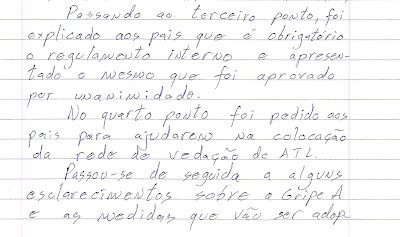 Passando ao terceiro ponto, foi
explicado aos pais que é obrigatório
o regulamento interno e apresen-
tado o mesmo que foi aprovado
por unanimidade.
No quarto ponto foi pedido aos
pais para ajudarem na colocação
da rede de vedação do ATL.
Passou-se de seguida a alguns
esclarecimentos sobre a Gripe A
e as medidas que vão ser adop